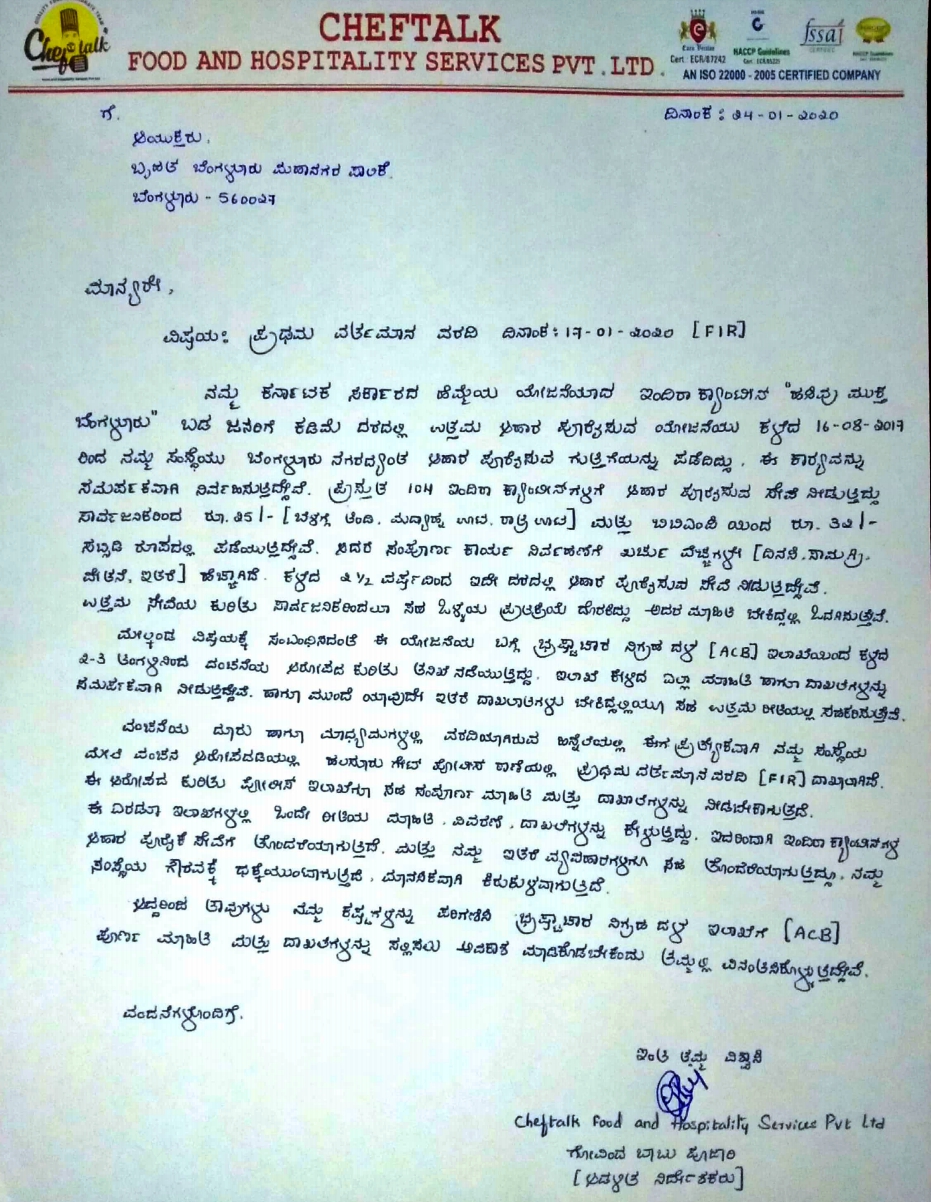 CHEFTALK
FOOD AND HOSPITALITY SERVICES PVT.LTD.
Chef talk
Cert : ECR/87242
HACCP Guidelines
fssai
AN ISO 22000 - 2005 CERTIFIED COMPANY
ಗೆ.
ದಿನಾಂಕ : 24-01-2020
ಆಯುಕ್ತರು.
ಬೃಹತ ಬೆಂಗಳೂರು ಮಹಾನಗರ ಪಾಲಿಕೆ.
ಬೆಂಗಳೂರು - 560027
ಮಾನ್ಯರೇ,
ವಿಷಯ: ಪ್ರಥಮ ವರ್ತಮಾನ ವರದಿ ದಿನಾಂಕ: 17-01-2020 [FIR]
ನಮ್ಮ ಕರ್ನಾಟಕ ಸರ್ಕಾರದ ಹೆಮ್ಮೆಯ ಯೋಜನೆಯಾದ ಇಂದಿರಾ ಕ್ಯಾಂಟೀನ್ "ಹಸಿವು ಮುಕ್ತ
ಬೆಂಗಳೂರು" ಬಡ ಜನರಿಗೆ ಕಡಿಮೆ ದರದಲ್ಲಿ ಉತ್ತಮ ಆಹಾರ ಪೂರೈಸುವ ಯೋಜನೆಯು ಕಳೆದ 16-08-2017
ರಿಂದ ನಮ್ಮ ಸಂಸ್ಥೆಯು ಬೆಂಗಳೂರು ನಗರದ್ಯಂತ ಆಹಾರ ಪೂರೈಸುವ ಗುತ್ತಿಗೆಯನ್ನು ಪಡೆದಿದ್ದು, ಈ ಕಾರ್ಯವನ್ನು
ಸಮರ್ಪಕವಾಗಿ ನಿರ್ವಹಿಸುತ್ತಿದ್ದೇವೆ. ಪ್ರಸ್ತುತ 104 ಇಂದಿರಾ ಕ್ಯಾಂಟೀನ್‌ಗಳಿಗೆ ಆಹಾರ ಪೂರೈಸುವ ಸೇವೆ ನೀಡುತ್ತಿದ್ದು
ಸಾರ್ವಜನಿಕರಿಂದ ರೂ. 25/- [ಬೆಳಿಗ್ಗೆ ತಿಂಡಿ, ಮದ್ಯಾಹ್ನ ಊಟ, ರಾತ್ರಿ ಊಟ] ಮತ್ತು ಬಿಬಿಎಂಪಿ ಯಿಂದ ರೂ. 32/-
ಸಬ್ಸಿಡಿ ರೂಪದಲ್ಲಿ ಪಡೆಯುತ್ತಿದ್ದೇವೆ. ಇದರ ಸಂಪೂರ್ಣ ಕಾರ್ಯ ನಿರ್ವಹಣೆಗೆ ಖರ್ಚು ವೆಚ್ಚಗಳೇ [ದಿನಸಿ, ಸಾಮಗ್ರಿ,
ವೇತನ, ಇತರೆ] ಹೆಚ್ಚಾಗಿದೆ. ಕಳೆದ 2 1/2 ವರ್ಷದಿಂದ ಇದೇ ದರದಲ್ಲಿ ಆಹಾರ ಪೂರೈಸುವ ಸೇವೆ ನೀಡುತ್ತಿದ್ದೇವೆ.
ಉತ್ತಮ ಸೇವೆಯ ಕುರಿತು ಸಾರ್ವಜನಿಕರಿಂದಲೂ ಸಹ ಒಳ್ಳೆಯ ಪ್ರತಿಕ್ರಿಯೆ ದೊರಕಿದ್ದು ಅದರ ಮಾಹಿತಿ ಬೇಕಿದ್ದಲ್ಲಿ ಓದಗಿಸುತ್ತೇವೆ.
ಮೇಲ್ಕಂಡ ವಿಷಯಕ್ಕೆ ಸಂಬಂಧಿಸಿದಂತೆ ಈ ಯೋಜನೆಯ ಬಗ್ಗೆ ಭ್ರಷ್ಟಾಚಾರ ನಿಗ್ರಹ ದಳ [ACB] ಇಲಾಖೆಯಿಂದ ಕಳೆದ
2-3 ತಿಂಗಳಿನಿಂದ ವಂಚನೆಯ ಆರೋಪದ ಕುರಿತು ತನಿಖೆ ನಡೆಯುತ್ತಿದ್ದು. ಇಲಾಖೆ ಕೇಳಿದ ಎಲ್ಲಾ ಮಾಹಿತಿ ಹಾಗೂ ದಾಖಲೆಗಳನ್ನು
ಸಮರ್ಪಕವಾಗಿ ನೀಡುತ್ತಿದ್ದೇವೆ. ಹಾಗೂ ಮುಂದೆ ಯಾವುದೇ ಇತರೆ ದಾಖಲಾತಿಗಳು ಬೇಕಿದ್ದಲ್ಲಿಯೂ ಸಹ ಉತ್ತಮ ರೀತಿಯಲ್ಲಿ ಸಹಕರಿಸುತ್ತೇವೆ.
ವಂಚನೆಯ ದೂರು ಹಾಗೂ ಮಾಧ್ಯಮಗಳಲ್ಲಿ ವರದಿಯಾಗಿರುವ ಹಿನ್ನೆಲೆಯಲ್ಲಿ ಈಗ ಪ್ರತ್ಯೇಕವಾಗಿ ನಮ್ಮ ಸಂಸ್ಥೆಯ
ಮೇಲೆ ವಂಚನೆ ಆರೋಪದಡಿಯಲ್ಲಿ ಹಲಸೂರು ಗೇಟ್ ಪೋಲಿಸ್ ಠಾಣೆಯಲ್ಲಿ ಪ್ರಥಮ ವರ್ತಮಾನ ವರದಿ [FIR] ದಾಖಲಾಗಿದೆ.
ಈ ಆರೋಪದ ಕುರಿತು ಪೋಲಿಸ್ ಇಲಾಖೆಗೂ ಸಹ ಸಂಪೂರ್ಣ ಮಾಹಿತಿ ಮತ್ತು ದಾಖಲೆಗಳನ್ನು ನೀಡಬೇಕಾಗುತ್ತದೆ.
ಈ ಎರಡೂ ಇಲಾಖೆಗಳಲ್ಲಿ ಒಂದೇ ರೀತಿಯ ಮಾಹಿತಿ, ವಿವರಣೆ, ದಾಖಲೆಗಳನ್ನು ಕೇಳುತ್ತಿದ್ದು. ಇದರಿಂದಾಗಿ ಇಂದಿರಾ ಕ್ಯಾಂಟೀನ್‌ಗಳ
ಆಹಾರ ಪೂರೈಕೆ ಸೇವೆಗೆ ತೊಂದರೆಯಾಗುತ್ತಿದೆ. ಮತ್ತು ನಮ್ಮ ಇತರೆ ವ್ಯವಹಾರಗಳಿಗೂ ಸಹ ತೊಂದರೆಯಾಗುತ್ತಿದ್ದು, ನಮ್ಮ
ಸಂಸ್ಥೆಯ ಗೌರವಕ್ಕೆ ಧಕ್ಕೆಯುಂಟಾಗುತ್ತಿದೆ, ಮಾನಸಿಕವಾಗಿ ಕಿರುಕುಳವಾಗುತ್ತಿದೆ.
ಆದ್ದರಿಂದ ತಾವುಗಳು ನಮ್ಮ ಕಷ್ಟಗಳನ್ನು ಪರಿಗಣಿಸಿ ಭ್ರಷ್ಟಾಚಾರ ನಿಗ್ರಹ ದಳ ಇಲಾಖೆಗೆ [ACB]
ಪೂರ್ಣ ಮಾಹಿತಿ ಮತ್ತು ದಾಖಲೆಗಳನ್ನು ಸಲ್ಲಿಸಲು ಅವಕಾಶ ಮಾಡಿಕೊಡಬೇಕೆಂದು ತಮ್ಮಲ್ಲಿ ವಿನಂತಿಸಿಕೊಳ್ಳುತ್ತಿದ್ದೇವೆ.
ವಂದನೆಗಳೊಂದಿಗೆ.
ಇಂತಿ ತಮ್ಮ ವಿಶ್ವಾಸಿ
Cheftalk Food and Hospitality Services Pvt Ltd
ಗೋವಿಂದ ಬಾಬು ಪೂಜಾರಿ
[ಆಡಳಿತ ನಿರ್ದೇಶಕರು]